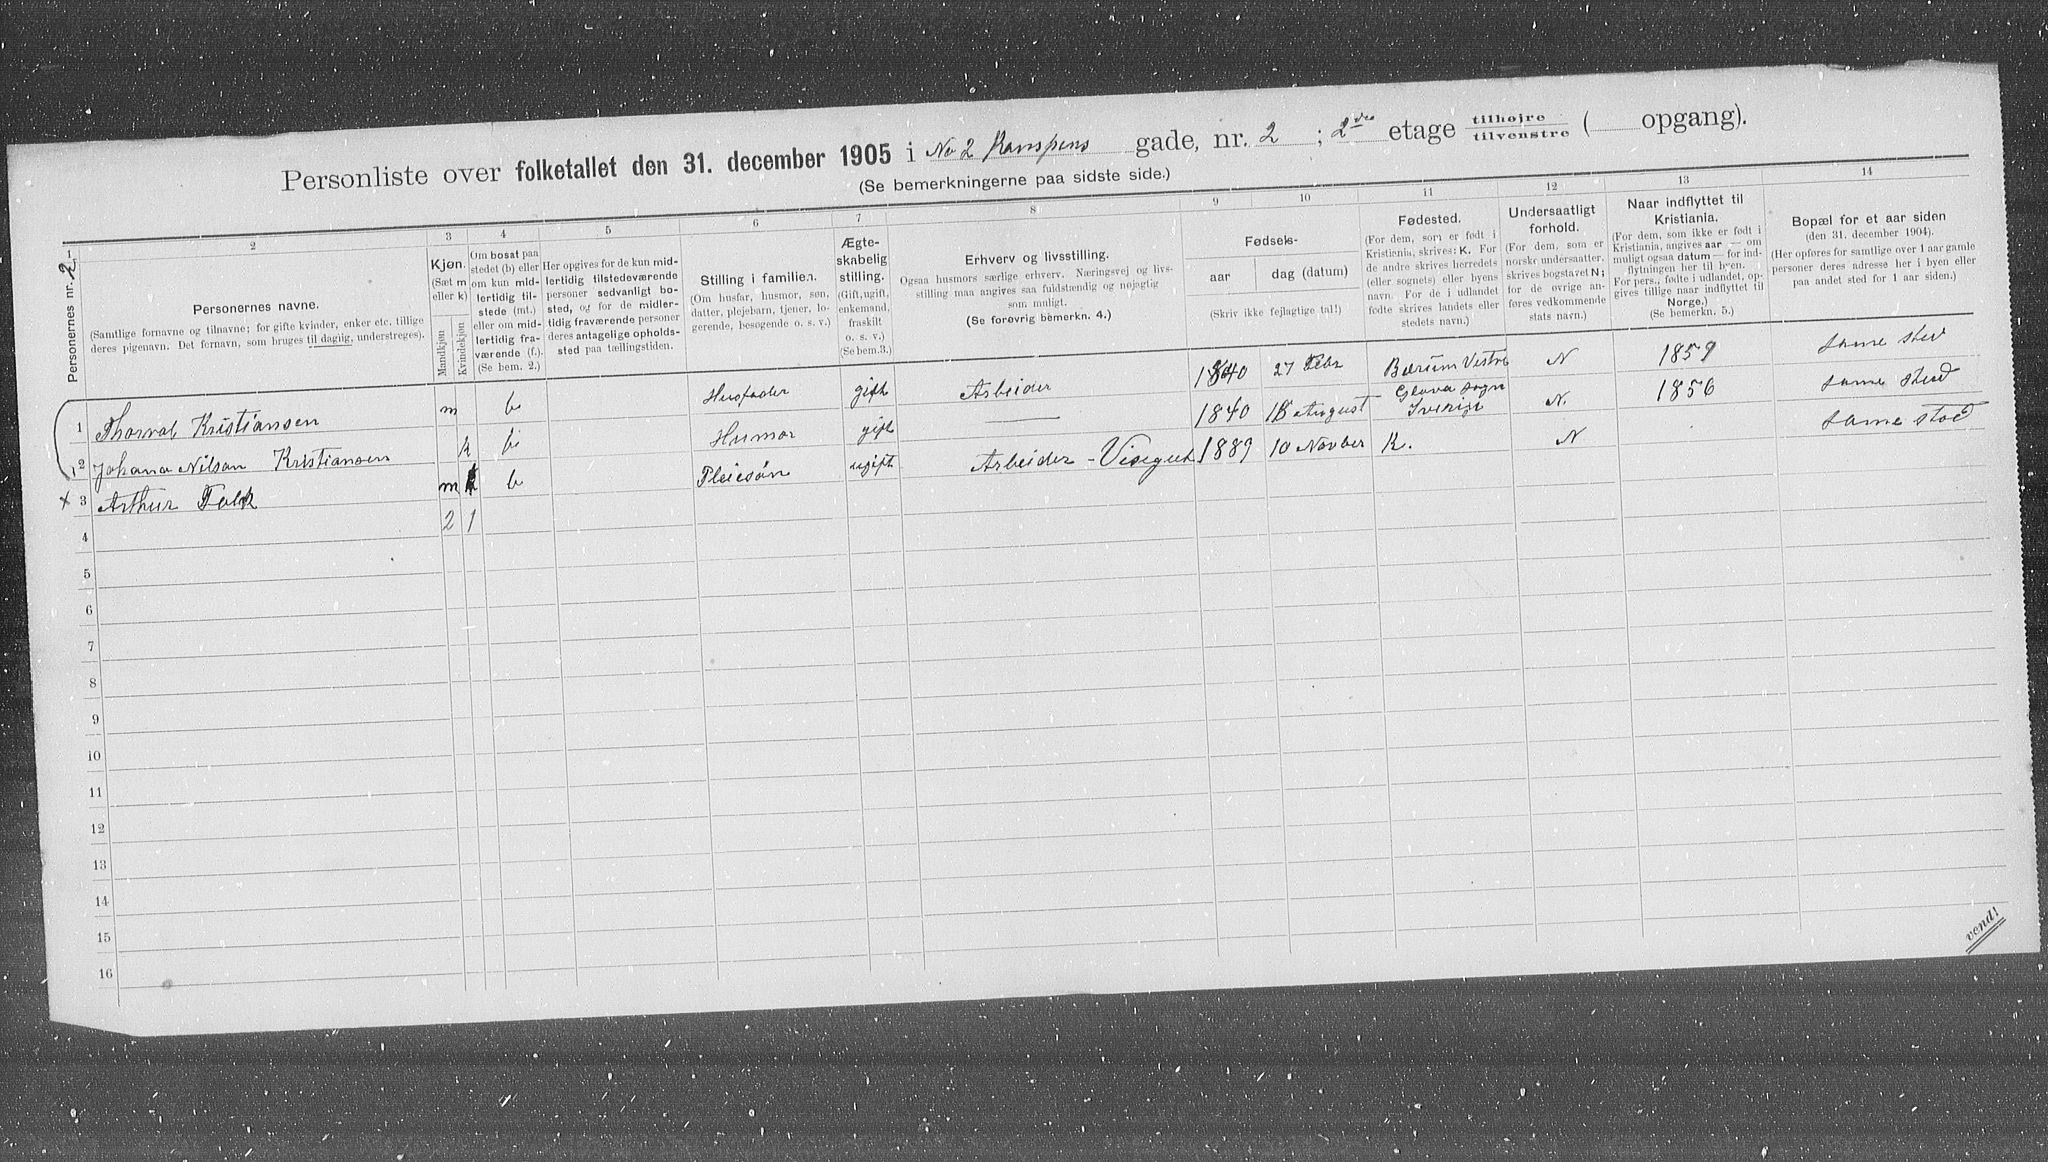 Personliste over folketallet den 31. december 1905 i No 2 Kampens gade, nr. 2 ; 2den etage tilhøjre / tilvenstre ( opgang).
(Se bemerkningerne paa sidste side.)
1 2 3 4 5 6 7 8 9 10 11 12 13 14
Personernes nr. 2
Personernes navne.
(Samtlige fornavne og tilnavne; for gifte kvinder, enker etc. tillige
deres pigenavn. Det fornavn, som bruges til daglig, understreges).
Kjøn.
(Sæt m
eller k)
Mandkjøn
Kvindekjøn
Om bosat paa
stedet (b) eller
om kun mid-
lertidig til-
stede (mt.)
eller om mid-
lertidig fra-
værende (f.)
(Se bem. 2.)
Her opgives for de kun mid-
lertidig tilstedeværende
personer sedvanligt bo-
sted, og for de midler-
tidig fraværende personer
deres antagelige opholds-
sted paa tællingstiden.
Stilling i familien.
(Om husfar, husmor, søn,
datter, plejebarn, tjener, lo-
gerende, besøgende o. s. v.)
Ægte-
skabelig
stilling.
(Gift, ugift,
enkemand,
fraskilt
o. s. v.)
(Se bem.3.)
Erhverv og livsstilling.
Ogsaa husmors særlige erhverv. Næringsvej og livs-
stilling maa angives saa fuldstændig og nøjagtig
som muligt.
(Se forøvrig bemerkn. 4.)
Fødsels-
aar dag (datum)
(Skriv ikke fejlagtige tal!)
Fødested.
(For dem, som er født i
Kristiania, skrives: K. For
de andre skrives herredets
(eller sognets) eller byens
navn. For de i udlandet
fødte skrives landets eller
stedets navn.)
Undersaatligt
forhold.
(For dem, som er
norske undersaatter,
skrives bogstavet N;
for de øvrige an-
føres vedkommende
stats navn.)
Naar indflyttet til
Kristiania.
(For dem, som ikke er født i
Kristiania, angives aar — om
muligt ogsaa datum — for ind-
flytningen her til byen.
For pers., fødte i udlandet, op-
gives tillige naar indflyttet til
Norge.)
(Se bemerkn. 5.)
Bopæl for et aar siden
(den 31. december 1904).
(Her opføres for samtlige over 1 aar gamle
personer deres adresse her i byen eller
paa andet sted for 1 aar siden.)
1 Thorval Kristiansen m b Husfader gift Arbeider 1840 27 Febr Bærum Vestre N 1859 same sted
2 Johana Nilsen Kristiansen k b Husmor gift — 1840 15 August Glava Sogn Sverige N. 1856 same sted
x 3 Arthur Falk m b Pleiesøn ugift Arbeider - Visegut 1889 10 Novber K. N same sted
4 2 1
5
6
7
8
9
10
11
12
13
14
15
16
vend!